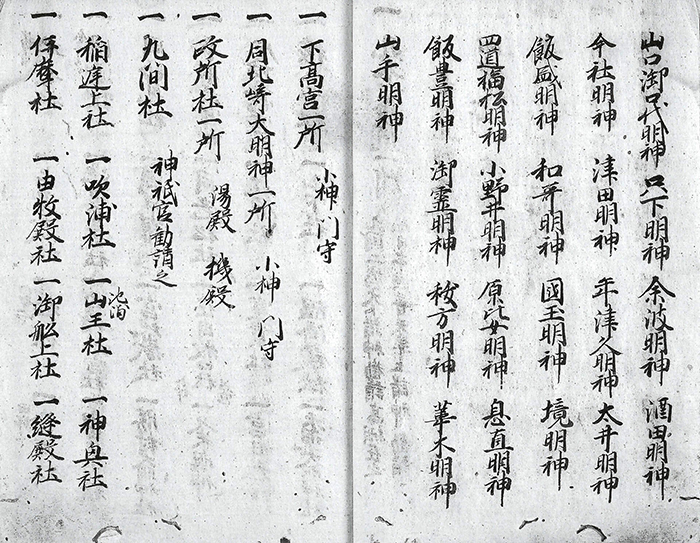 山口御代明神 只下明神 余波明神 酒田明神
今社明神 津田明神 年津久明神 太井明神
飯盛明神 和平明神 國玉明神 境明神
四道福松明神 小野井明神 原比女明神 息直明神
飯豊明神 御霊明神 枚方明神 華木明神
山手明神
一 下高宮一所 小神 門守
一 同北崎大明神一所 小神 門守
一 政所社一所 湯殿 機殿
一 九间社 神祇官勧請之
一 稲逹上社 一 吹浦社 一 山王社 一 神奥社
一 社 一 由牧殿社 一 御船上社 一 縫殿社